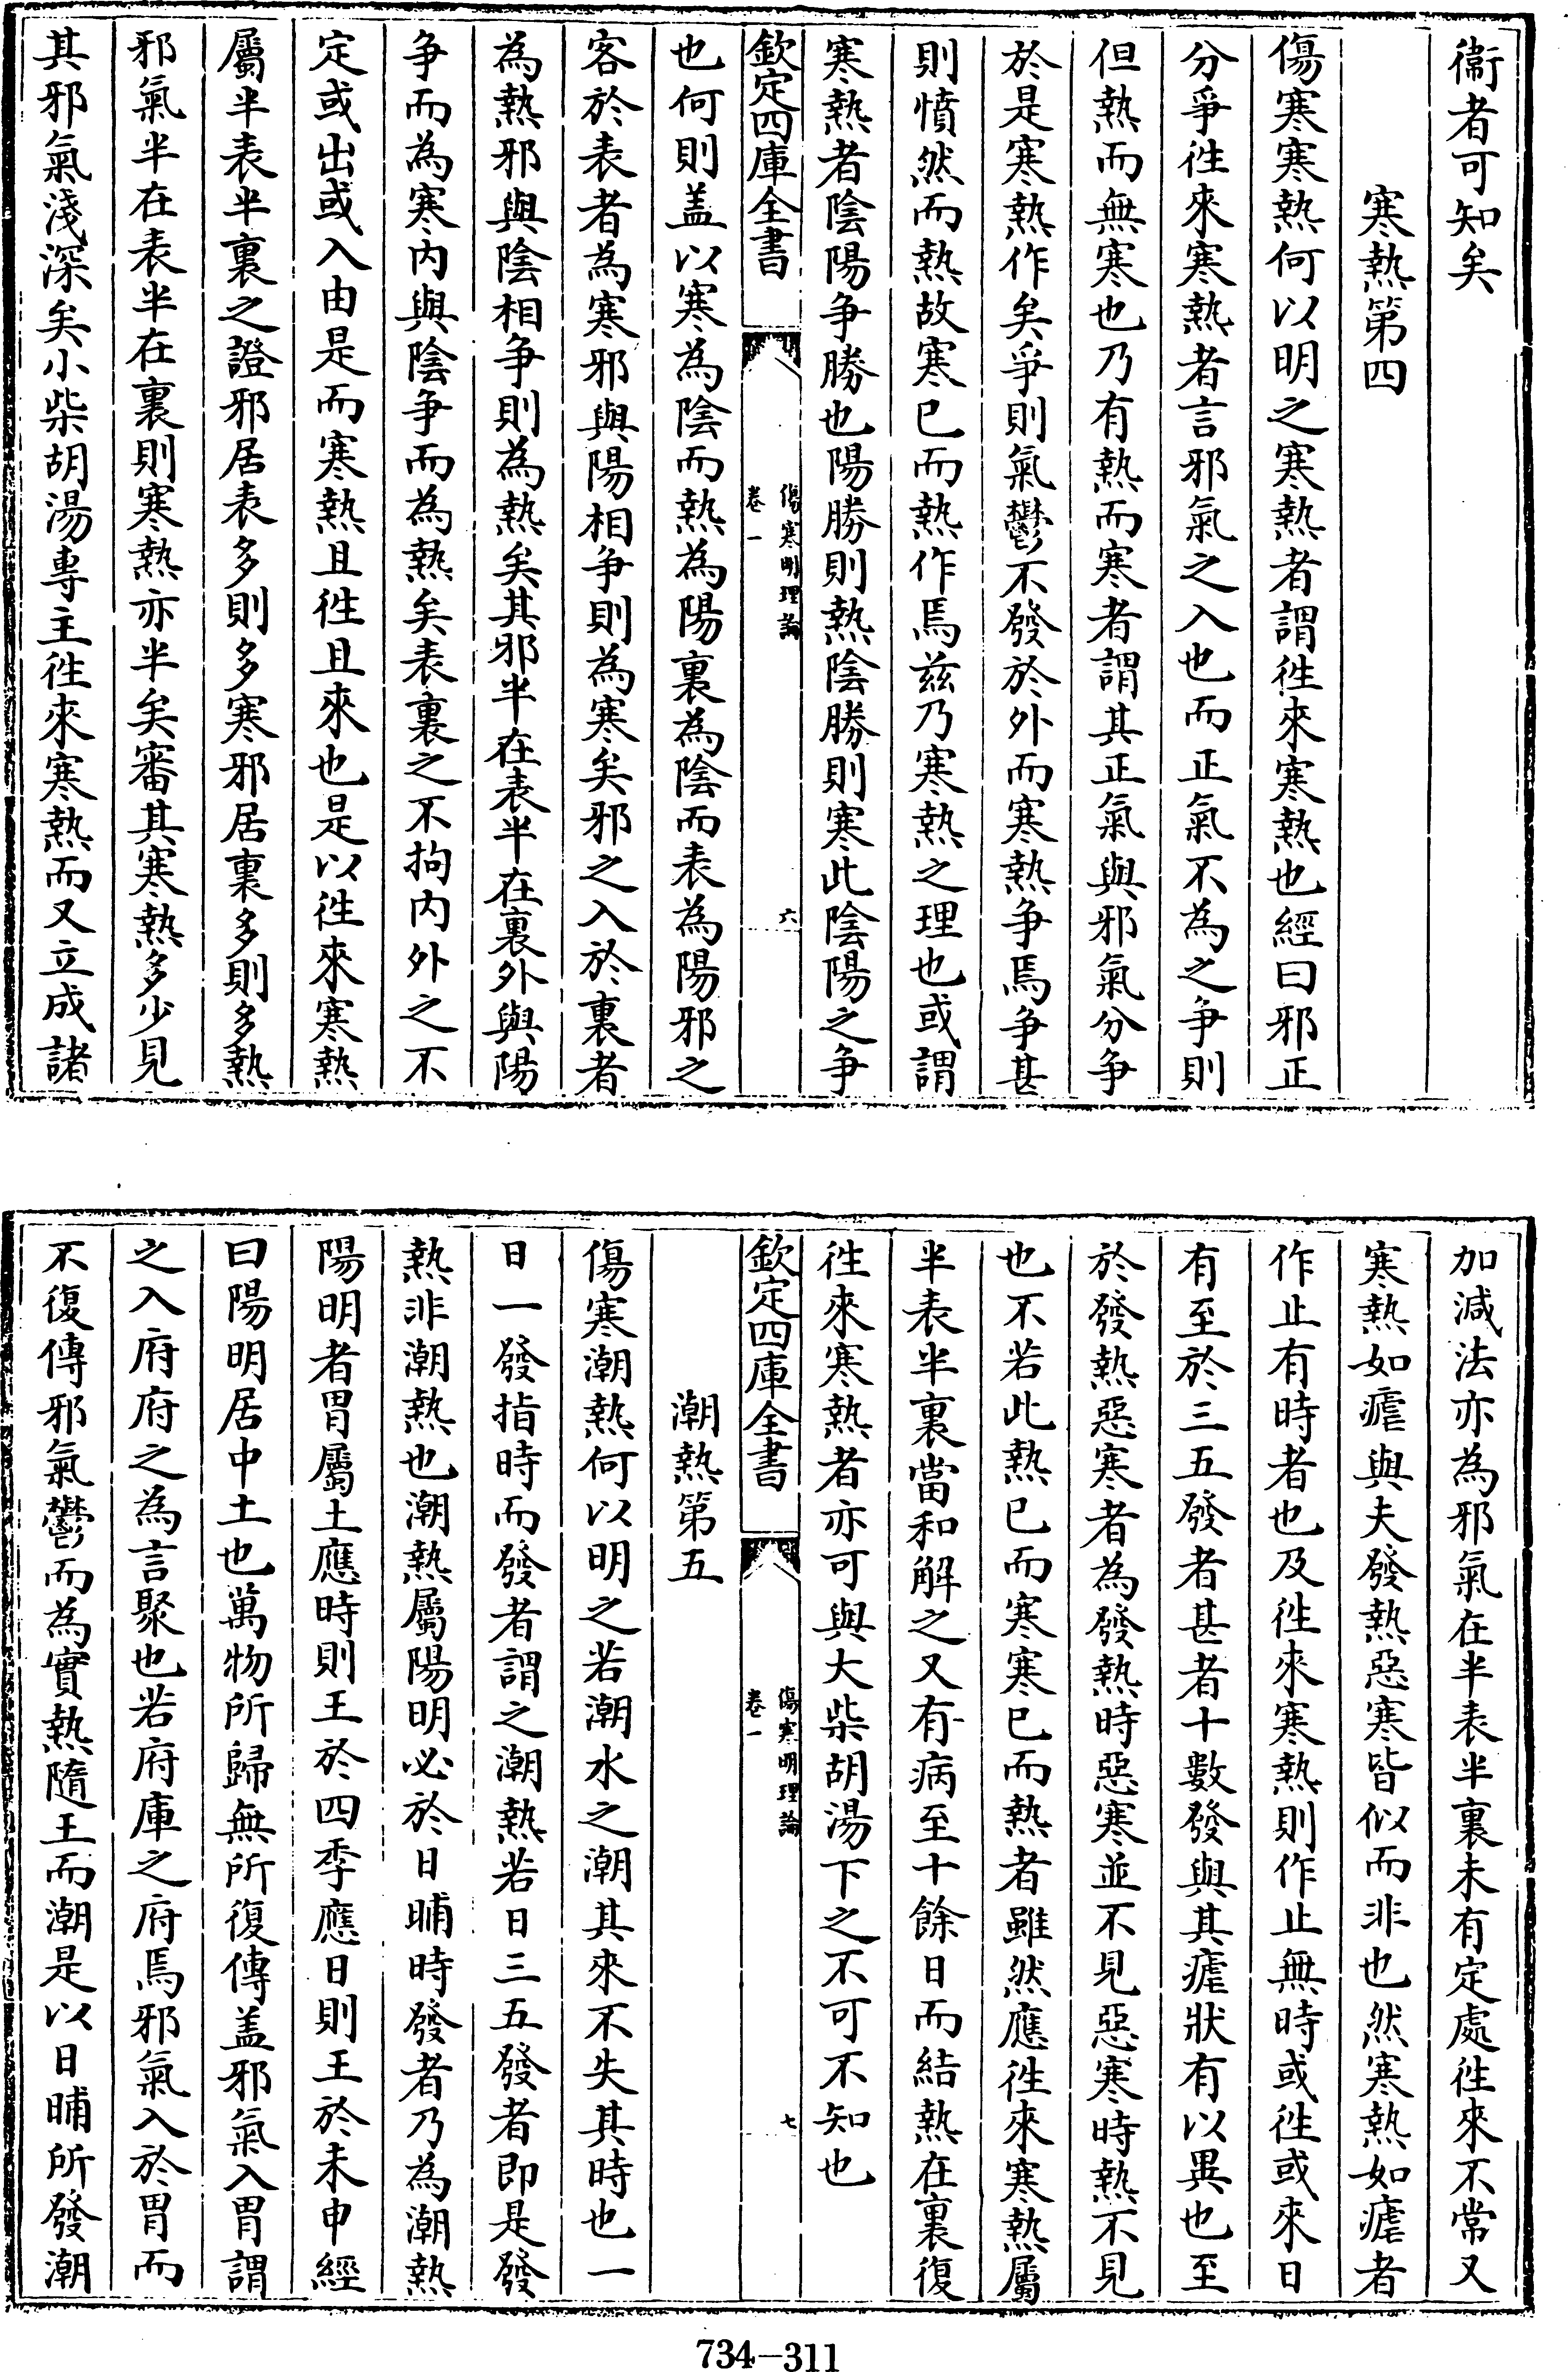 衞者可知矣
寒熱第四
傷寒寒熱何以明之寒熱者謂徃來寒熱也經曰邪正
分爭徃來寒熱者言邪氣之入也而正氣不為之争則
但熱而無寒也乃有熱而寒者謂其正氣與邪氣分争
於是寒熱作矣爭則氣鬱不發於外而寒熱争焉争甚
則憤然而熱故寒已而熱作焉兹乃寒熱之理也或謂
寒熱者陰陽争勝也陽勝則熱陰勝則寒此陰陽之争
欽定四庫全書
傷寒明理論
卷一
六
也何則盖以寒為陰而熱為陽裏為陰而表為陽邪之
客於表者為寒邪與陽相争則為寒矣邪之入於裏者
為熱邪與陰相争則為熱矣其邪半在表半在裏外與陽
争而為寒内與陰争而為熱矣表裏之不拘内外之不
定或出或入由是而寒熱且徃且來也是以徃來寒熱
屬半表半裏之證邪居表多則多寒邪居裏多則多熱
邪氣半在表半在裏則寒熱亦半矣審其寒熱多少見
其邪氣淺深矣小柴胡湯專主徃來寒熱而又立成諸
加減法亦為邪氣在半表半裏未有定處徃來不常又
寒熱如瘧與夫發熱惡寒皆似而非也然寒熱如瘧者
作止有時者也及徃來寒熱則作止無時或徃或來日
有至於三五發者甚者十數發與其瘧狀有以異也至
於發熱惡寒者為發熱時惡寒並不見惡寒時熱不見
也不若此熱已而寒寒已而熱者雖然應徃來寒熱屬
半表半裏當和解之又有病至十餘日而結熱在裏復
徃來寒熱者亦可與大柴胡湯下之不可不知也
欽定四庫全書
傷寒明理論
卷一
七
潮熱第五
傷寒潮熱何以明之若潮水之潮其來不失其時也一
日一發指時而發者謂之潮熱若日三五發者即是發
熱非潮熱也潮熱屬陽明必於日晡時發者乃為潮熱
陽明者胃屬土應時則王於四季應日則王於未申經
曰陽明居中土也萬物所歸無所復傳盖邪氣入胃謂
之入府府之為言聚也若府庫之府焉邪氣入於胃而
不復傳邪氣鬱而為實熱隨王而潮是以日晡所發潮
734—311